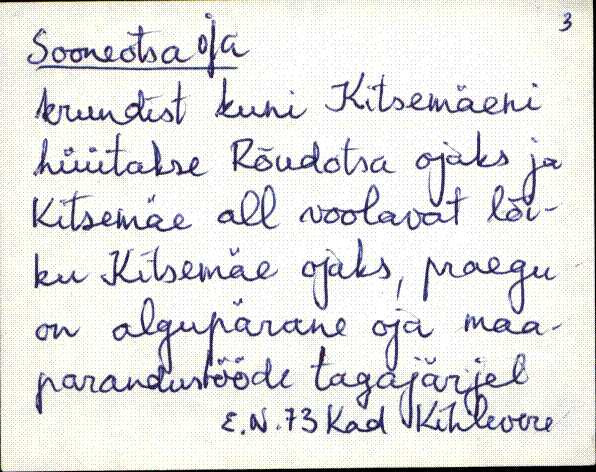 3
Sooneotsa oja
krundist kuni Kitsemäeni
hüütakse Rõudotsa ojaks ja
Kitsemäe all voolavat lõi-
ku Kitsemäe ojaks, praegu
on algupärane oja maa-
parandustööde tagajärjel
E.N. 73 Kad Kihlevere